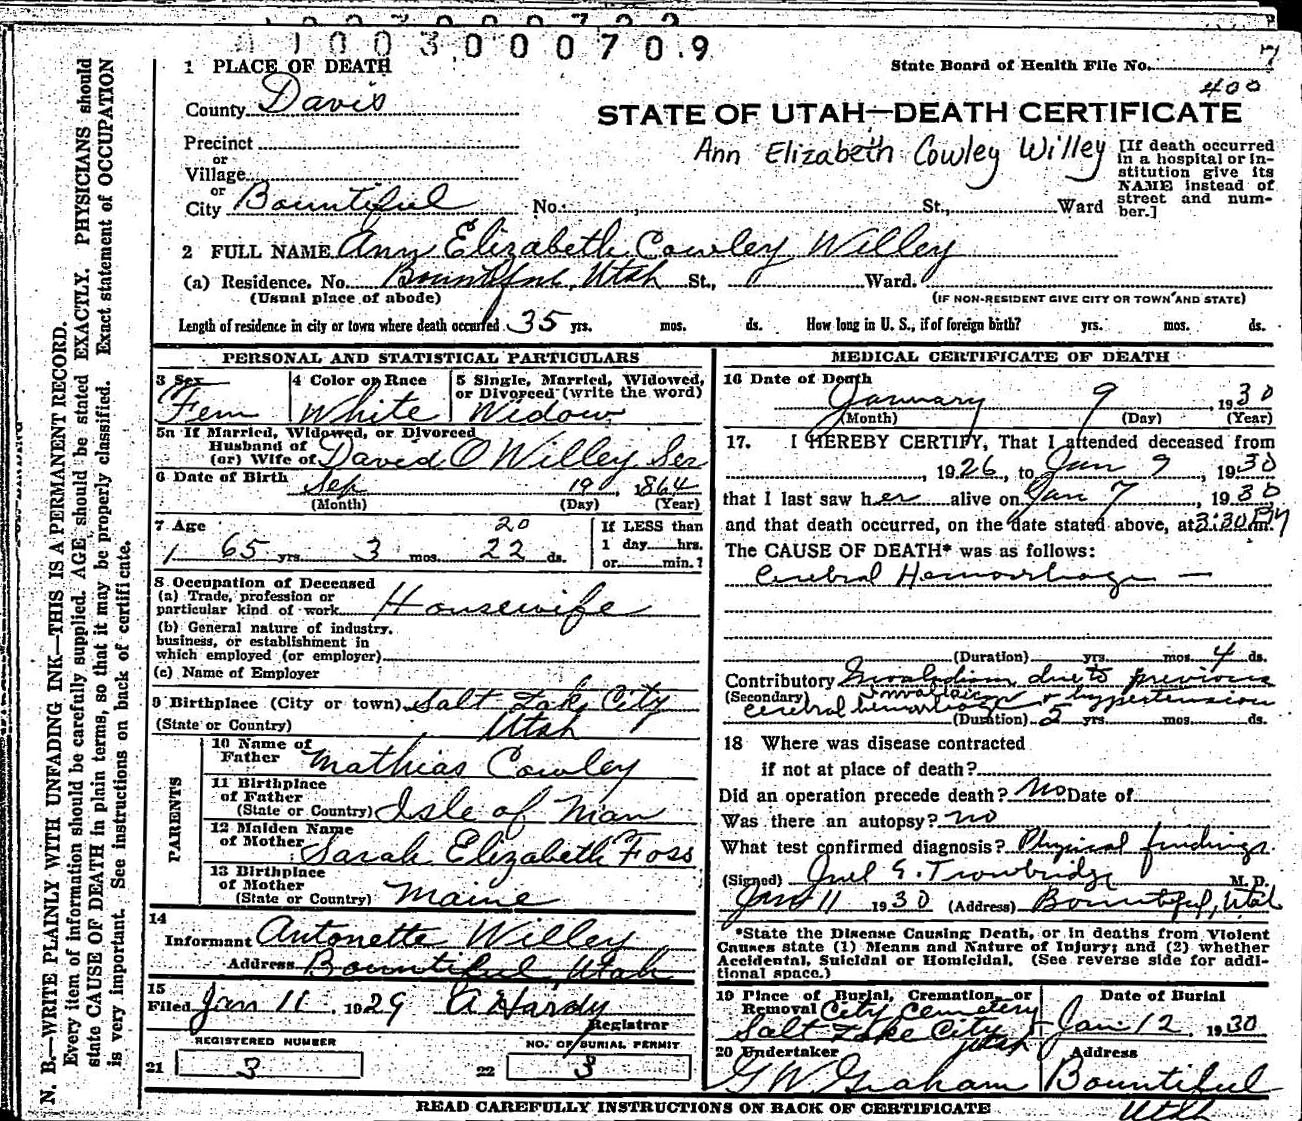 1003000709
1 PLACE OF DEATH
State Board of Health File No. 7
400
County Davis
STATE OF UTAH—DEATH CERTIFICATE
Precinct
or
Village
or
City Bountiful
Ann Elizabeth Cowley Willey
[If death occurred
in a hospital or in-
stitution give its
NAME instead of
street and num-
ber.]
No. , St., Ward
2 FULL NAME Ann Elizabeth Cowley Willey
(a) Residence. No. Bountiful, Utah St., Ward.
(Usual place of abode)
(IF NON-RESIDENT GIVE CITY OR TOWN AND STATE)
Length of residence in city or town where death occurred 35 yrs. mos. ds. How long in U. S., if of foreign birth? yrs. mos. ds.
PERSONAL AND STATISTICAL PARTICULARS
3 Sex
Fem
4 Color or Race
White
5 Single, Married, Widowed,
or Divorced (write the word)
Widow
5a If Married, Widowed, or Divorced
Husband of
(or) Wife of David O Willey Ser
6 Date of Birth Sep 19, 1864
(Month) (Day) (Year)
7 Age
20
65 yrs. 3 mos. 22 ds.
If LESS than
1 day hrs.
or min.?
8 Occupation of Deceased
(a) Trade, profession or
particular kind of work Housewife
(b) General nature of industry,
business, or establishment in
which employed (or employer)
(c) Name of Employer
9 Birthplace (City or town) Salt Lake City
(State or Country) Utah
PARENTS
10 Name of
Father Mathias Cowley
11 Birthplace
of Father
(State or Country) Isle of Man
12 Maiden Name
of Mother Sarah Elizabeth Foss
13 Birthplace
of Mother
(State or Country) Maine
14
Informant Antonette Willey
Address Bountiful, Utah
15
Filed Jan 11, 1929 A Hardy
Registrar
REGISTERED NUMBER
21 3
NO. OF BURIAL PERMIT
22 3
MEDICAL CERTIFICATE OF DEATH
16 Date of Death
January 9, 1930
(Month) (Day) (Year)
17. I HEREBY CERTIFY, That I attended deceased from
, 1926, to Jan 9, 1930
that I last saw her alive on Jan 7, 1930
and that death occurred, on the date stated above, at 3:30 Pm
The CAUSE OF DEATH* was as follows:
Cerebral Hemorrhage —
(Duration) yrs. mos. 4 ds.
Contributory Invalidism due to previous
(Secondary) Invalidism
cerebral hemorrhage & hypertension
(Duration) 5 yrs. mos. ds.
18 Where was disease contracted
if not at place of death?
Did an operation precede death? No Date of
Was there an autopsy? no
What test confirmed diagnosis? Physical findings
(Signed) E. Trowbridge M. D.
Jan 11 1930 (Address) Bountiful, Utah
*State the Disease Causing Death, or in deaths from Violent
Causes state (1) Means and Nature of Injury; and (2) whether
Accidental, Suicidal or Homicidal. (See reverse side for addi-
tional space.)
19 Place of Burial, Cremation, or
Removal City Cemetery
Salt Lake City
Utah
Date of Burial
Jan 12, 1930
20 Undertaker
G W Graham
Address
Bountiful
Utah
READ CAREFULLY INSTRUCTIONS ON BACK OF CERTIFICATE
N. B.—WRITE PLAINLY WITH UNFADING INK—THIS IS A PERMANENT RECORD.
Every item of information should be carefully supplied. AGE should be stated EXACTLY. PHYSICIANS should
state CAUSE OF DEATH in plain terms, so that it may be properly classified. Exact statement of OCCUPATION
is very important. See instructions on back of certificate.